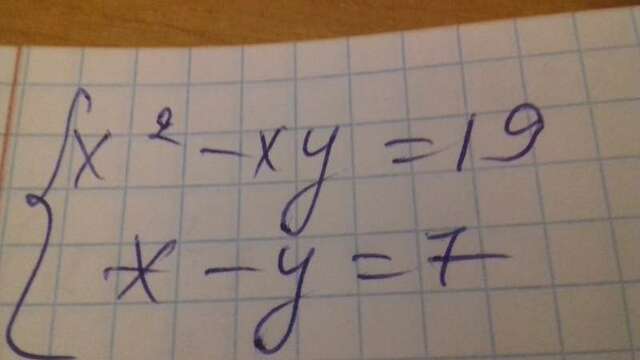 x² - xy = 19
x - y = 7